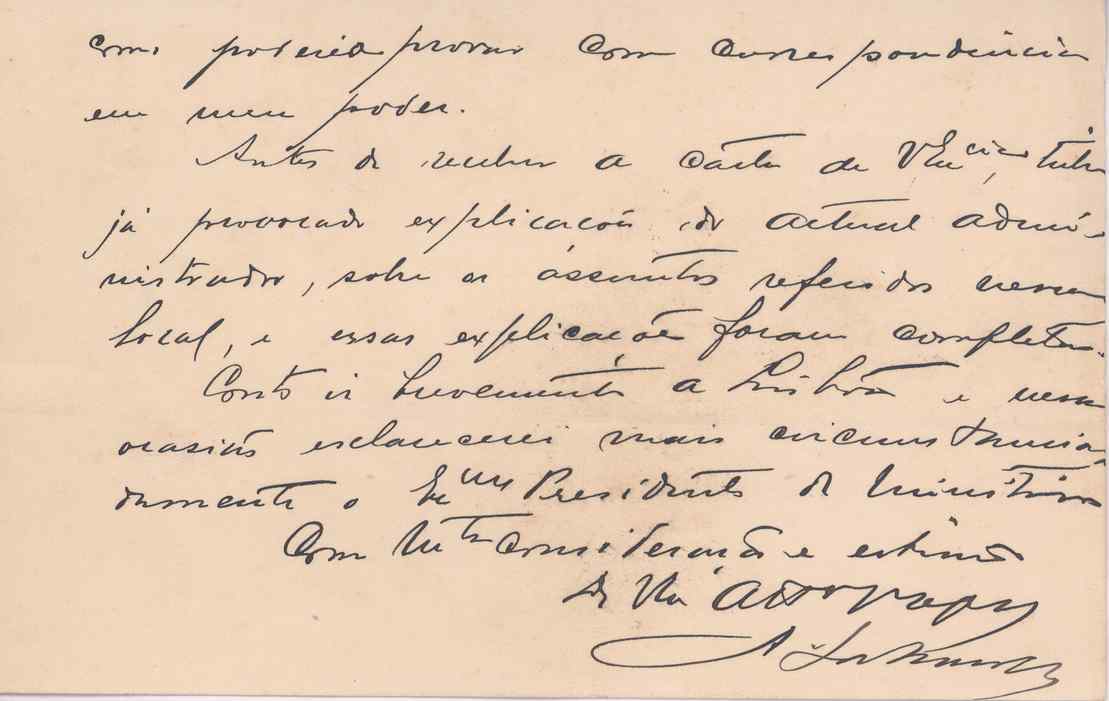 como poderia provar com correspondencia
em meu poder.
Antes de receber a carta de V. Excia, tinha
já provocado explicações do actual admi-
nistrador, sobre os assuntos referidos nessa
local, e essas explicações foram completas.
Conto ir brevemente a Lisboa e nessa
ocasião esclarecerei mais circunstancia-
damente o Exmo Presidente de Ministerio
Com mta consideração e estima
De V. Exa
A